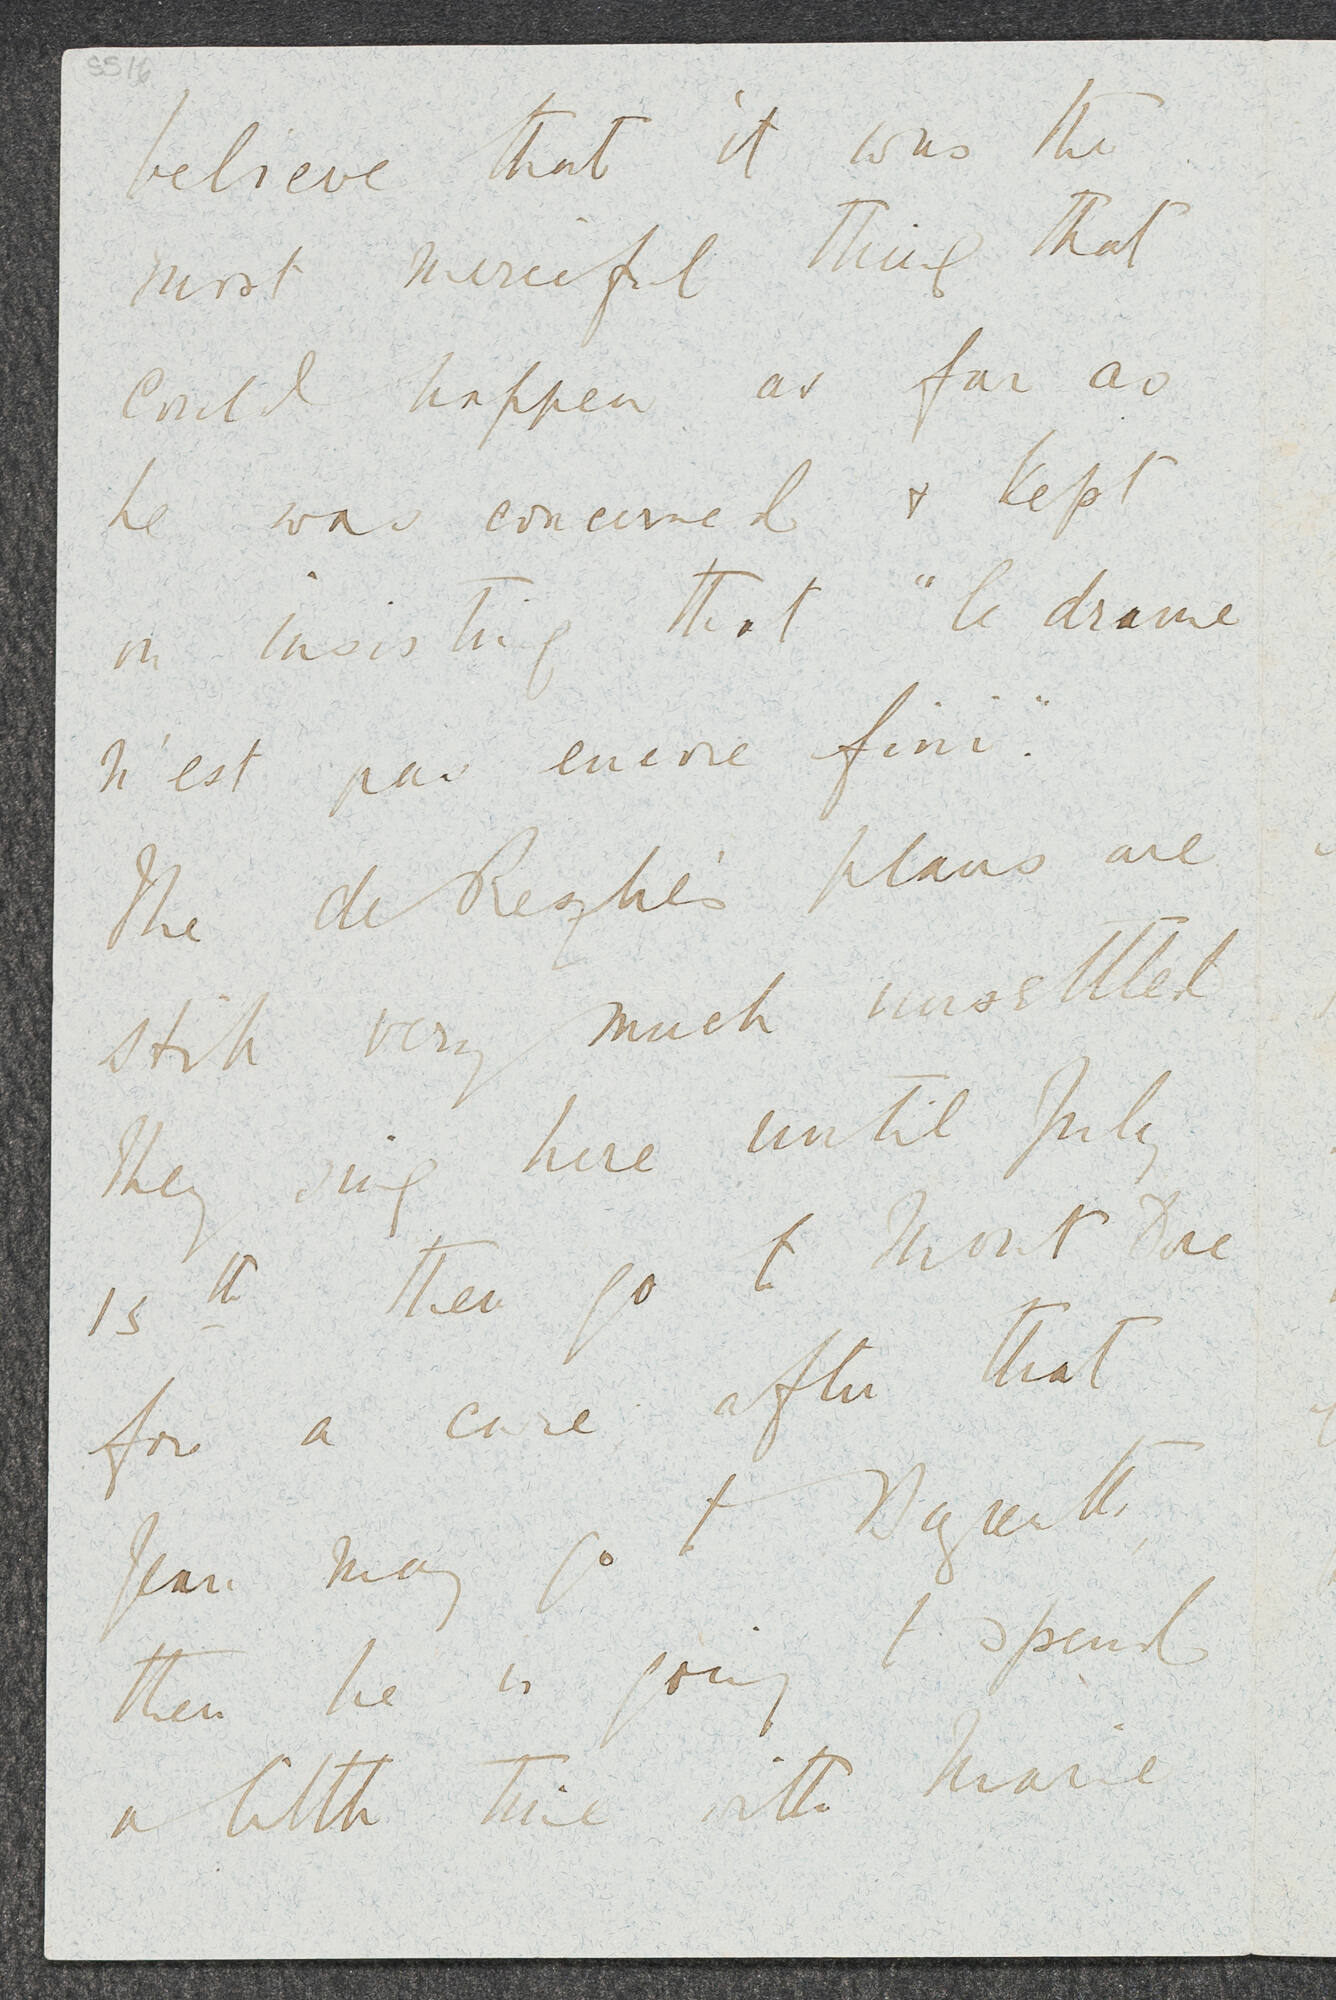 SS16
believe that it was the
most merciful thing that
could happen as far as
he was concerned & kept
on insisting that "le drame
n'est pas encore fini".
The de Reszke's plans are
still very much unsettled
They sing here until July
15th then go to Mont Dore
for a cure, after that
Jean may go to Bayreuth,
then he is going to spend
a little time with Marie